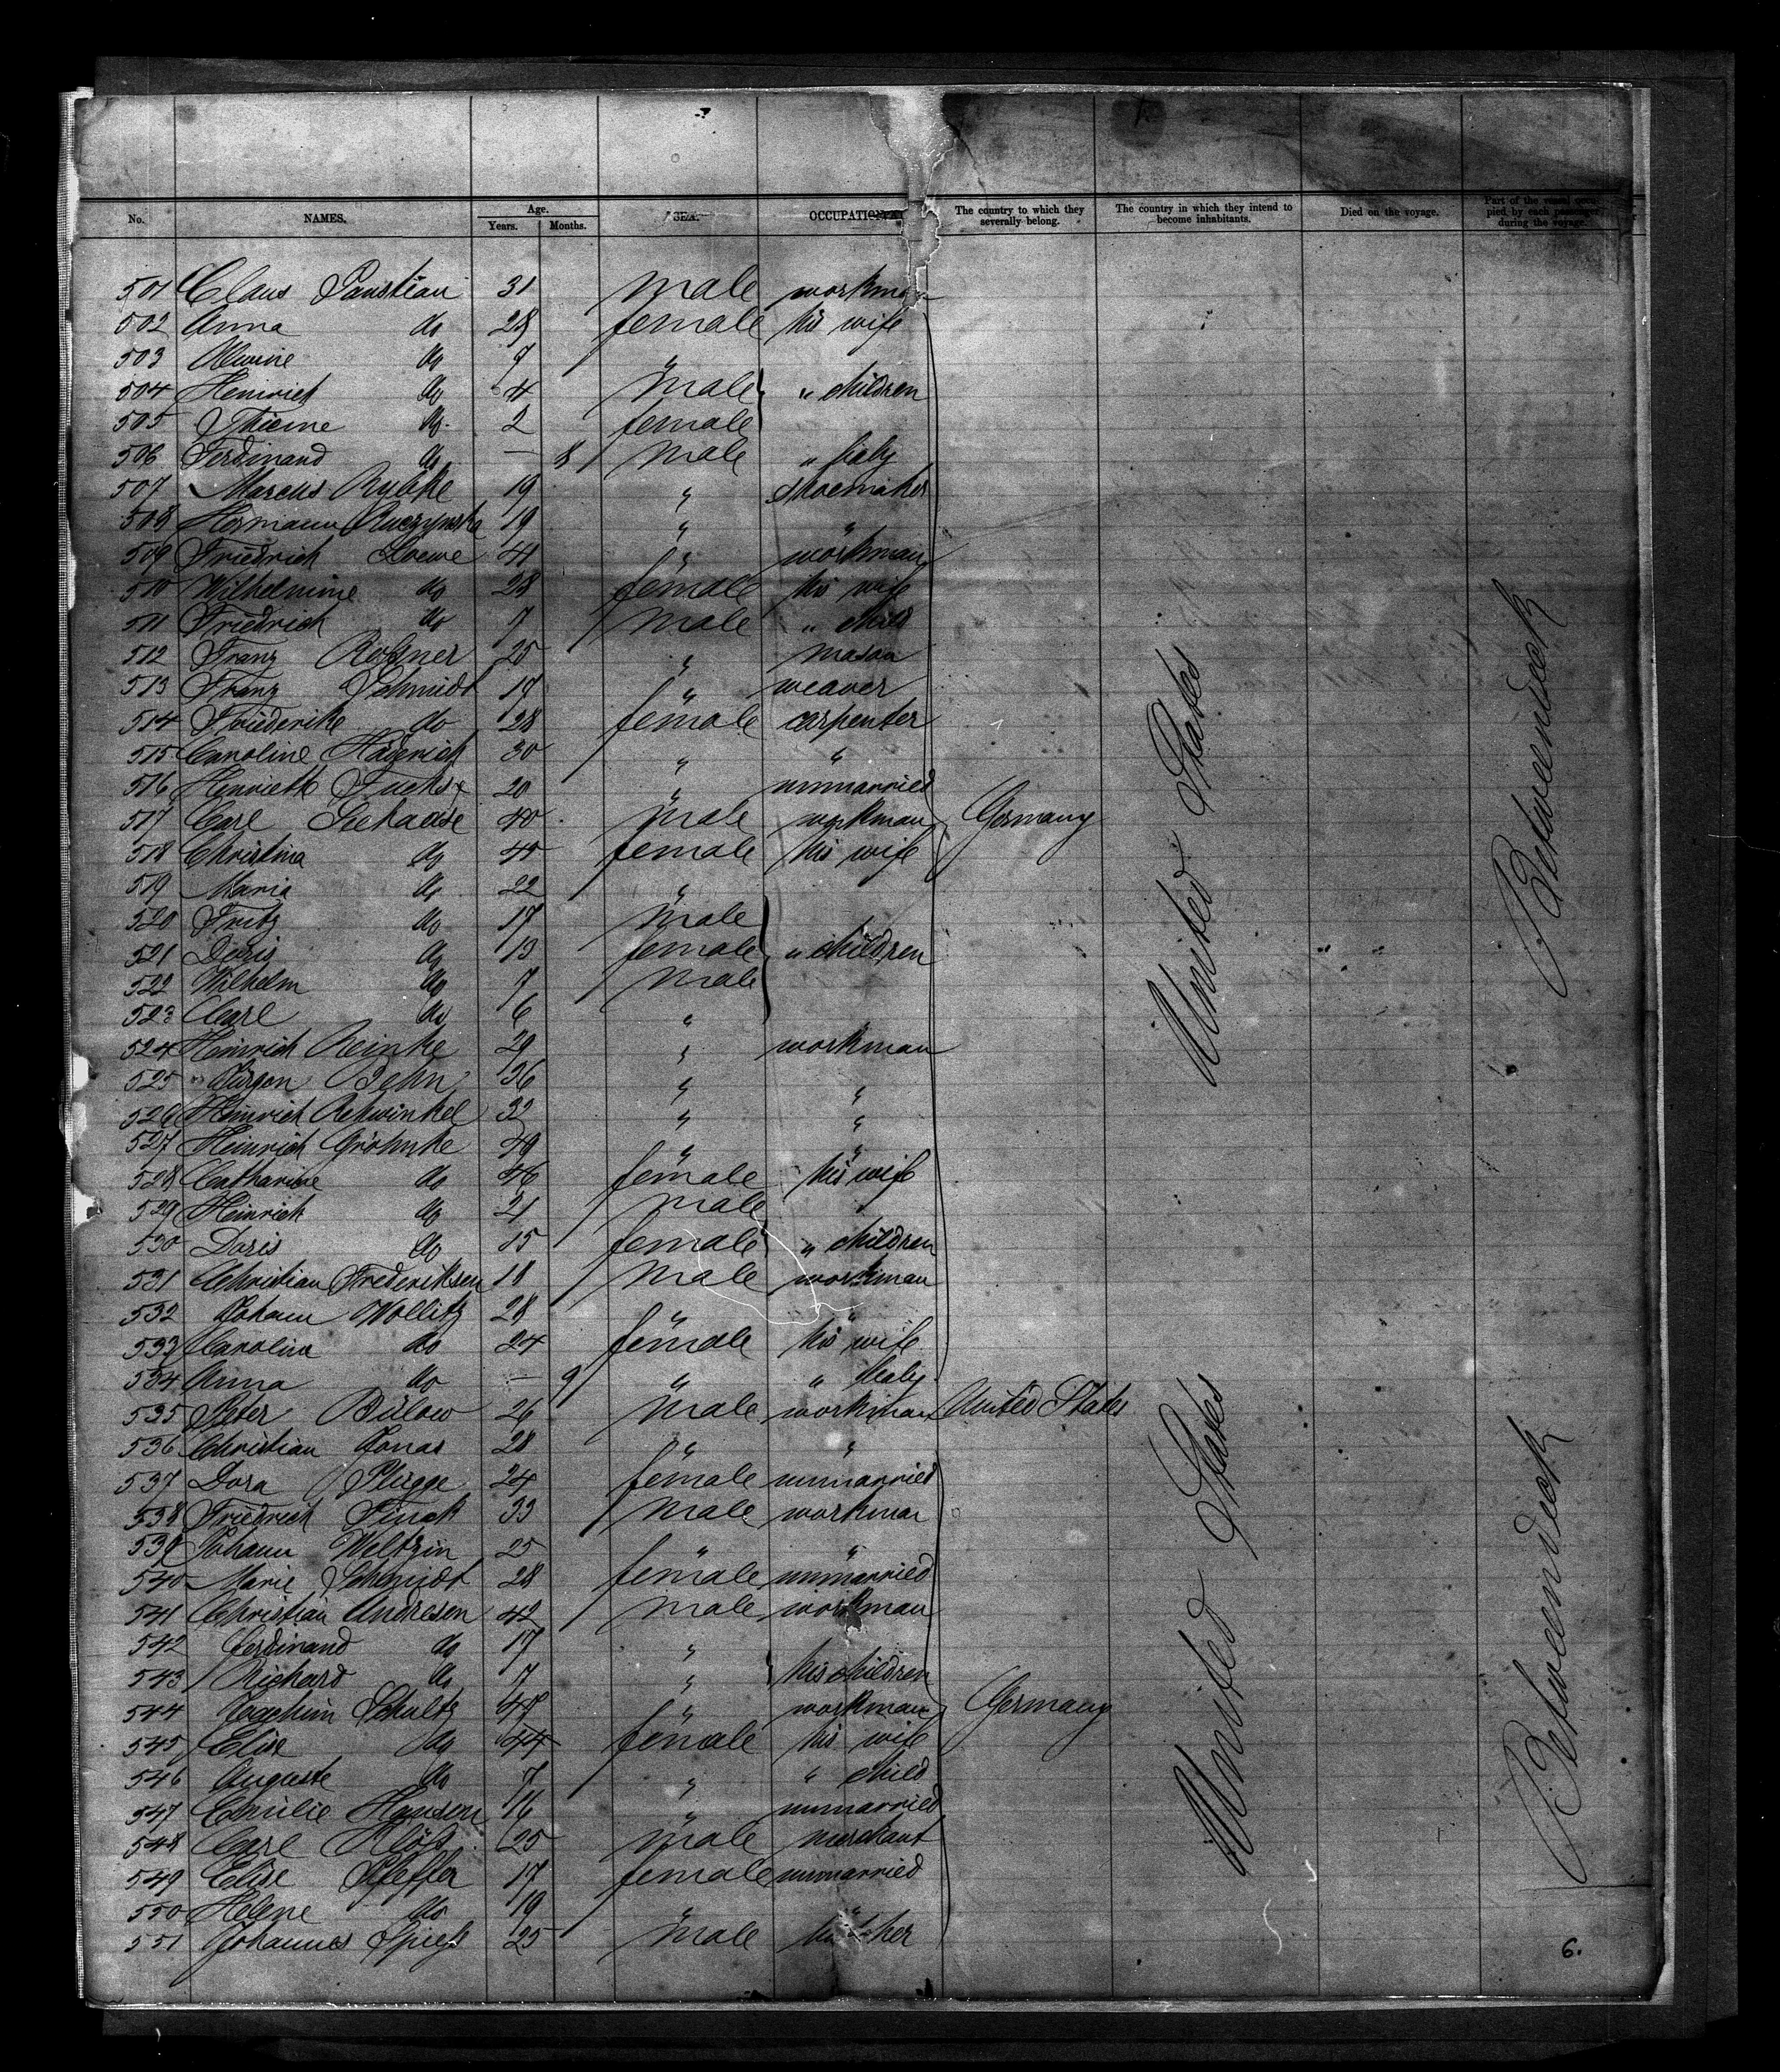 No. NAMES. Age. Years. Months. SEX. OCCUPATION The country to which they severally belong. The country in which they intend to become inhabitants. Died on the voyage. Part of the vessel occupied by each passenger during the voyage.
501 Claus Paustian 31 male workman
502 Anna do 28 female his wife
503 Alwine do 9 "
504 Heinrich do 4 male " children
505 do 2 female
506 Ferdinand do — 8 male " baby
507 Marcus Rybke 19 " shoemaker
508 Hermann 19 " "
509 Friedrich Loewe 41 " workman
510 Wilhelmine do 28 female his wife
511 Friedrich do 7 male " child
512 Franz 25 " mason
513 Franz Schmidt 19 " weaver
514 Friederike do 28 female carpenter
515 Caroline 30 " "
516 Fuchs 20 " unmarried
517 Carl 40 male workman Germany
518 Christina do 45 female his wife
519 Maria do 22 "
520 Fritz do 17 male
521 Doris do 13 female " children
522 Wilhelm do 7 male
523 Carl do 6 "
524 Heinrich Reinke 29 " workman
525 Jürgen Behn 36 " "
526 Heinrich Rehwinkel 32 " "
527 Heinrich Gröhnke 49 " "
528 Catharine do 46 female his wife
529 Heinrich do 21 male
530 Doris do 15 female " children
531 Christian Frederiksen 18 male workman
532 Johann Wollitz 28 " "
533 Caroline do 24 female his wife
534 Anna do — 9 " " baby
535 Peter Bülow 26 male workman United States
536 Christian Jonas 28 " "
537 Dora Plügge 24 female unmarried
538 Friedrich Finck 33 male workman
539 Johann Weltzin 25 " "
540 Marie Schmidt 28 female unmarried
541 Christian Andresen 42 male workman
542 Ferdinand do 17 "
543 Richard do 7 " his children
544 Joachim Schultz 47 " workman Germany
545 Elise do 44 female his wife
546 Auguste do 7 " " child
547 Emilie Hansen 16 " unmarried
548 Carl 25 male merchant
549 Elise Pfeffer 17 female unmarried
550 Helene do 19 " "
551 Johannes Spieß 25 male
United States
Betweendeck
United States
Betweendeck
6.